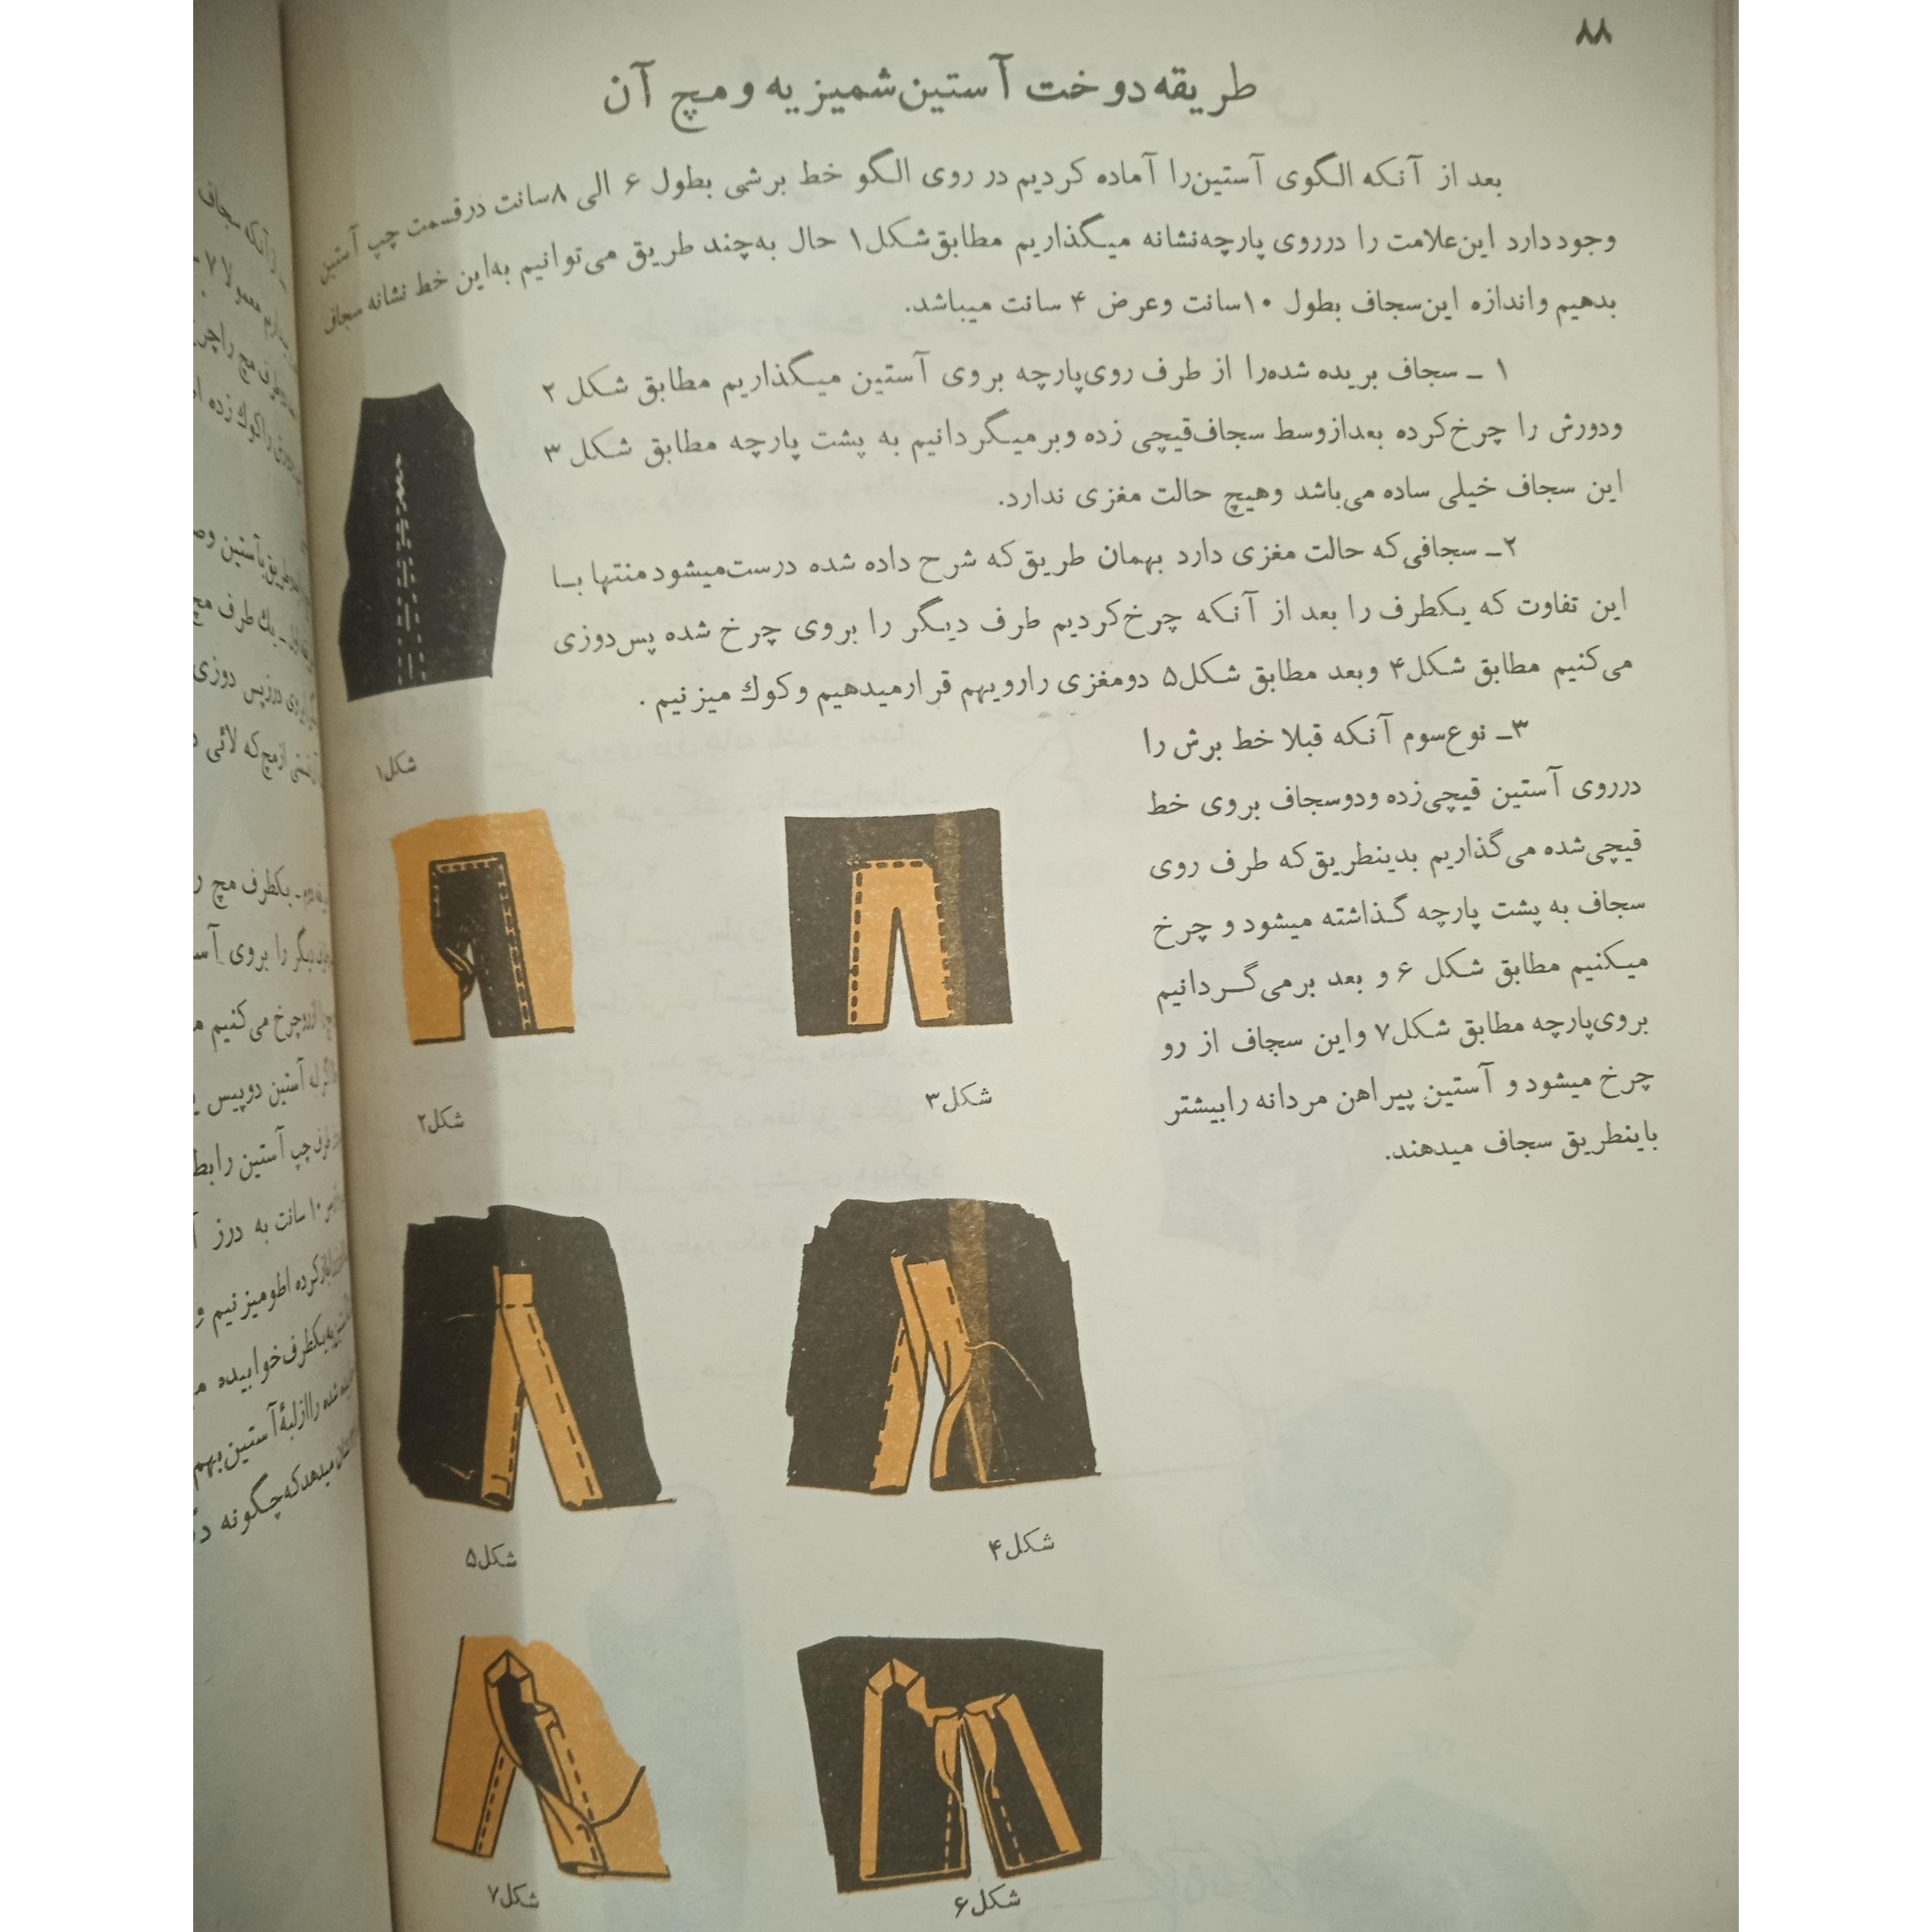 ۸۸
طریقه دوخت آستین شمیزیه و مچ آن
بعد از آنکه الگوی آستین را آماده کردیم در روی الگو خط برشی بطول ۶ الی ۸سانت درقسمت چپ آستین
وجود دارد این علامت را درروی پارچه نشانه میگذاریم مطابق شکل۱ حال به چند طریق می توانیم به این خط نشانه سجاف
بدهیم واندازه این سجاف بطول ۱۰سانت وعرض ۴ سانت میباشد.
۱ ـ سجاف بریده شده را از طرف روی پارچه بروی آستین میگذاریم مطابق شکل ۲
ودورش را چرخ کرده بعدازوسط سجاف قیچی زده وبرمیگردانیم به پشت پارچه مطابق شکل ۳
این سجاف خیلی ساده می باشد وهیچ حالت مغزی ندارد.
۲ـ سجافی که حالت مغزی دارد بهمان طریق که شرح داده شده درست میشود منتها با
این تفاوت که یکطرف را بعد از آنکه چرخ کردیم طرف دیگر را بروی چرخ شده پس دوزی
می کنیم مطابق شکل۴ وبعد مطابق شکل۵ دومغزی رارویهم قرارمیدهیم وکوك میزنیم .
۳ـ نوع سوم آنکه قبلا خط برش را
درروی آستین قیچی زده ودوسجاف بروی خط
قیچی شده می گذاریم بدینطریق که طرف روی
سجاف به پشت پارچه گذاشته میشود و چرخ
میکنیم مطابق شکل ۶ و بعد برمی گردانیم
بروی پارچه مطابق شکل۷ واین سجاف از رو
چرخ میشود و آستین پیراهن مردانه رابیشتر
باینطریق سجاف میدهند.
شکل۱
شکل۳
شکل۲
شکل۴
شکل۵
شکل۶
شکل۷